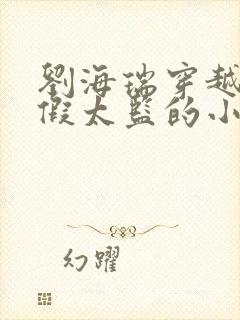 劉海瑞穿越
假太監的小
幻躍